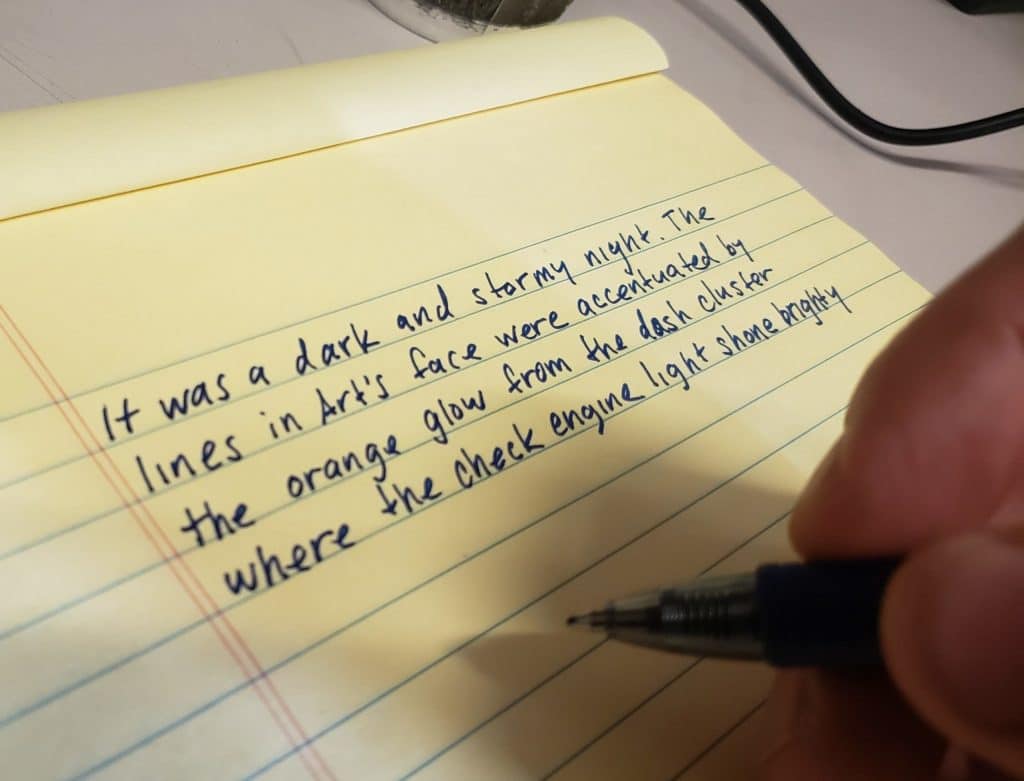 It was a dark and stormy night. The
lines in Art's face were accentuated by
the orange glow from the dash cluster
where the check engine light shone brightly